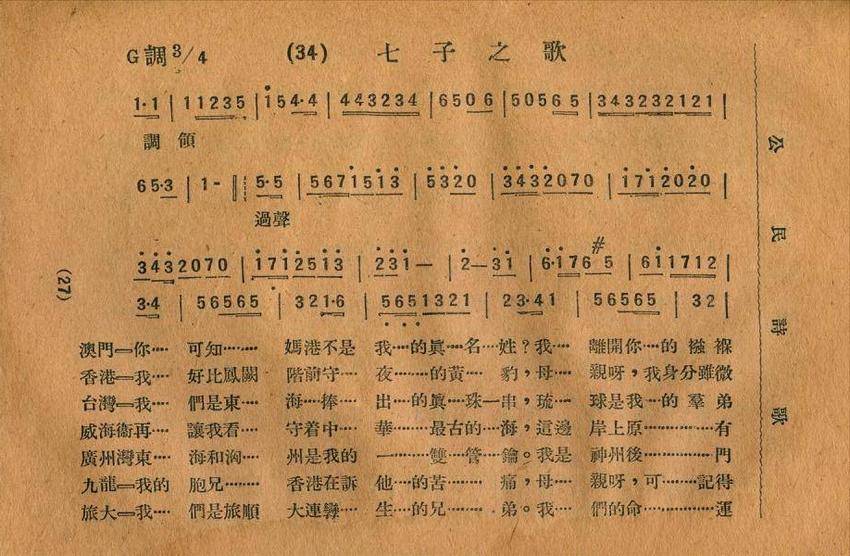 G調 3/4 (34) 七子之歌
1·1 | 11235 | 154·4 | 443234 | 6506 | 50565 | 343232121 |
調領
65·3 | 1- || 5·5 | 5671513 | 5320 | 3432070 | 1712020 |
過聲
3432070 | 1712513 | 231— | 2—31 | 6·1765 | 611712 |
#
3·4 | 56565 | 321·6 | 5651321 | 23·41 | 56565 | 32 |
澳門═你… 可知…… 媽港不是 我…的眞…名…姓?我… 離開你…的 襁褓
香港═我… 好比鳳闕 階前守… 夜……的黄… 豹,母… 親呀,我身分雖微
台灣═我… 們是東… 海…捧… 出…的眞…珠一串,琉… 球是我…的 羣弟
威海衞再… 讓我看… 守着中… 華……最古的…海,這邊 岸上原………有
廣州灣東… 海和洶… 州是我的 一……雙…管…鑰。我是 神州後………門
九龍═我的 胞兄…… 香港在訴 他…的苦… 痛,母… 親呀,可……記得
旅大═我… 們是旅順 大連孿… 生…的兄… 弟。我… 們的命………運
公民詩歌
(27)